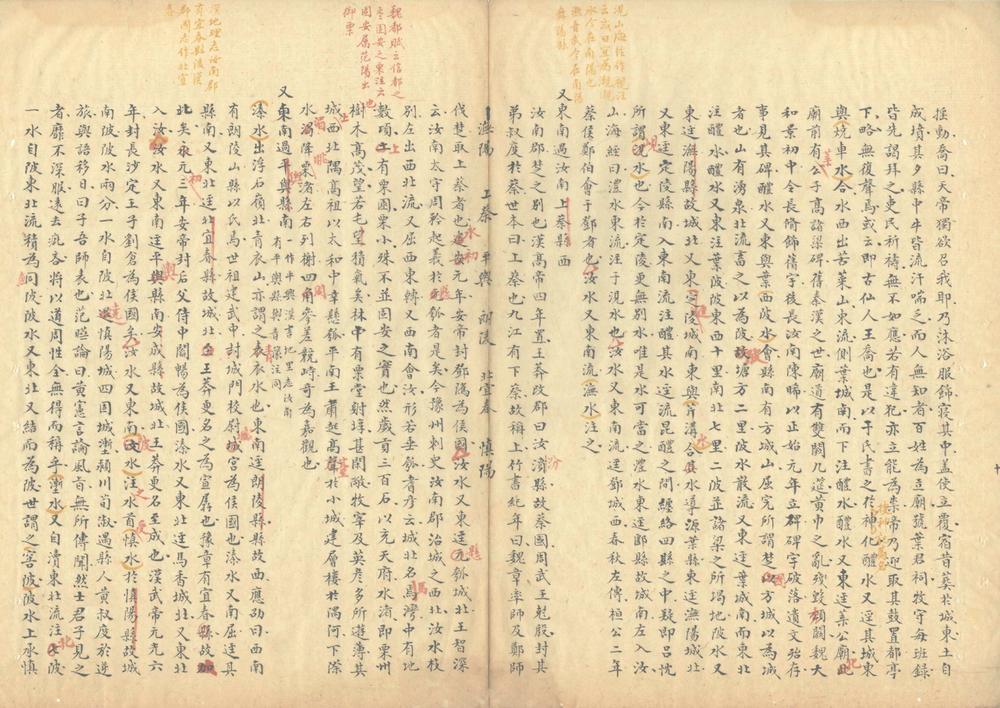 推動喬曰天帝獨欲召我耶乃沐浴服飾寢其中蓋便立覆宿昔葬於城東土自
成墳其夕縣中牛皆流汗喘乏而人無知者百姓為立廟號葉君祠牧守每班錄
皆先謁拜之吏民祈禱無不如應若有違犯亦立能為祟帝乃迎取其鼓置都亭
下略無復聲焉或云即古仙人王喬也是以干氏書之於神化醴水又逕其城東
與燒車水合水西出苦菜山東流側葉城南而下注醴水醴水又東逕葉公廟北
廟前有公子高諸梁碑舊秦漢之世廟道有雙闕几筵黃巾之亂殘毀頹闕魏大
和景初中令長脩飾舊宇後長汝南陳晞以正始元年立碑碑字破落遺文殆存
事見其碑醴水又東與葉西陂水會縣南有方城山屈完所謂楚國方城以為城
者也山有湧泉北流畜之以為陂陂塘方二里陂水散流又東逕葉城南而東北
注醴水醴水又東注葉陂陂東西十里南北七里二陂並諸梁之所堨也陂水又
東逕潕陽縣故城北又東定陵城南東與芹溝合其水導源葉縣東逕潕陽城北
又東逕定陵縣南入東南流注醴其水逕流昆醴之間纏絡四縣之中疑即呂忱
所謂浘水也今於定陵更無別水唯是水可當之澧水東逕郾縣故城南左入汝
山海經曰澧水東流注于浘水也汝水又東南流逕鄧城西春秋左傳桓公二年
蔡侯鄭伯會于鄧者也汝水又東南流潕水注之
又東南過汝南上蔡縣西
汝南郡楚之別也漢高帝四年置王莽改郡曰汝濆縣故蔡國周武王克殷封其
弟叔度於蔡世本曰上蔡也九江有下蔡故稱上竹書紀年曰魏章率師及鄭師
潕陽 上蔡 平輿 朗陵 北宜春 慎陽
伐楚取上蔡者也永初元年安帝封鄧隲為侯國汝水又東逕懸瓠城北王智深
云汝南太守周矜起義於懸瓠者是矣今豫州刺史汝南郡治城之西北汝水枝
別左出西北流又屈西東轉又西南會汝形若垂瓠耆彥云城北名馬灣中有地
數頃上有栗園栗小殊不並固安之實也然歲貢三百石以充天府水渚即栗州
樹木高茂望若屯雲積氣矣林中有栗堂射埻甚閑敞牧宰及英彥多所遊薄其
城西北隅高祖以太和中幸懸瓠平南王肅起高臺於小城建層樓於隅阿下際
水湄降眺栗渚左右列榭四周參差競峙奇為嘉觀也
又東南過平輿縣南
溱水出浮石嶺北青衣山亦謂之青衣水也東南逕朗陵縣故西應劭曰西南
有朗陵山縣以氏焉世祖建武中封城門校尉臧宮為侯國也溱水又南屈逕其
縣南又東北逕北宜春縣故城北王莽更名之為宣孱也豫章有宜春縣故
北矣永元三年安帝封后父侍中閻暢為侯國溱水又東北逕馬香城北又東北
入汝汝水又東南逕平輿縣南安成縣故城北王莽更名至成也漢武帝元光六
年封長沙定王子劉倉為侯國矣汝水又東南陂水注之水首慎水於慎陽縣故城
南陂陂水兩分一水自陂北遶慎陽城四周城塹潁川荀淑遇縣人黃叔度於逆
旅與語移日曰子吾師表也范曄論曰黃憲言論風旨無所傳聞然士君子見之
者靡不深服遠去玼吝將以道周性全無得而稱乎塹水又自瀆東北流注北陂
一水自陂東北流積為同陂陂水又東北又結而為陂世謂之窖陂陂水上承慎